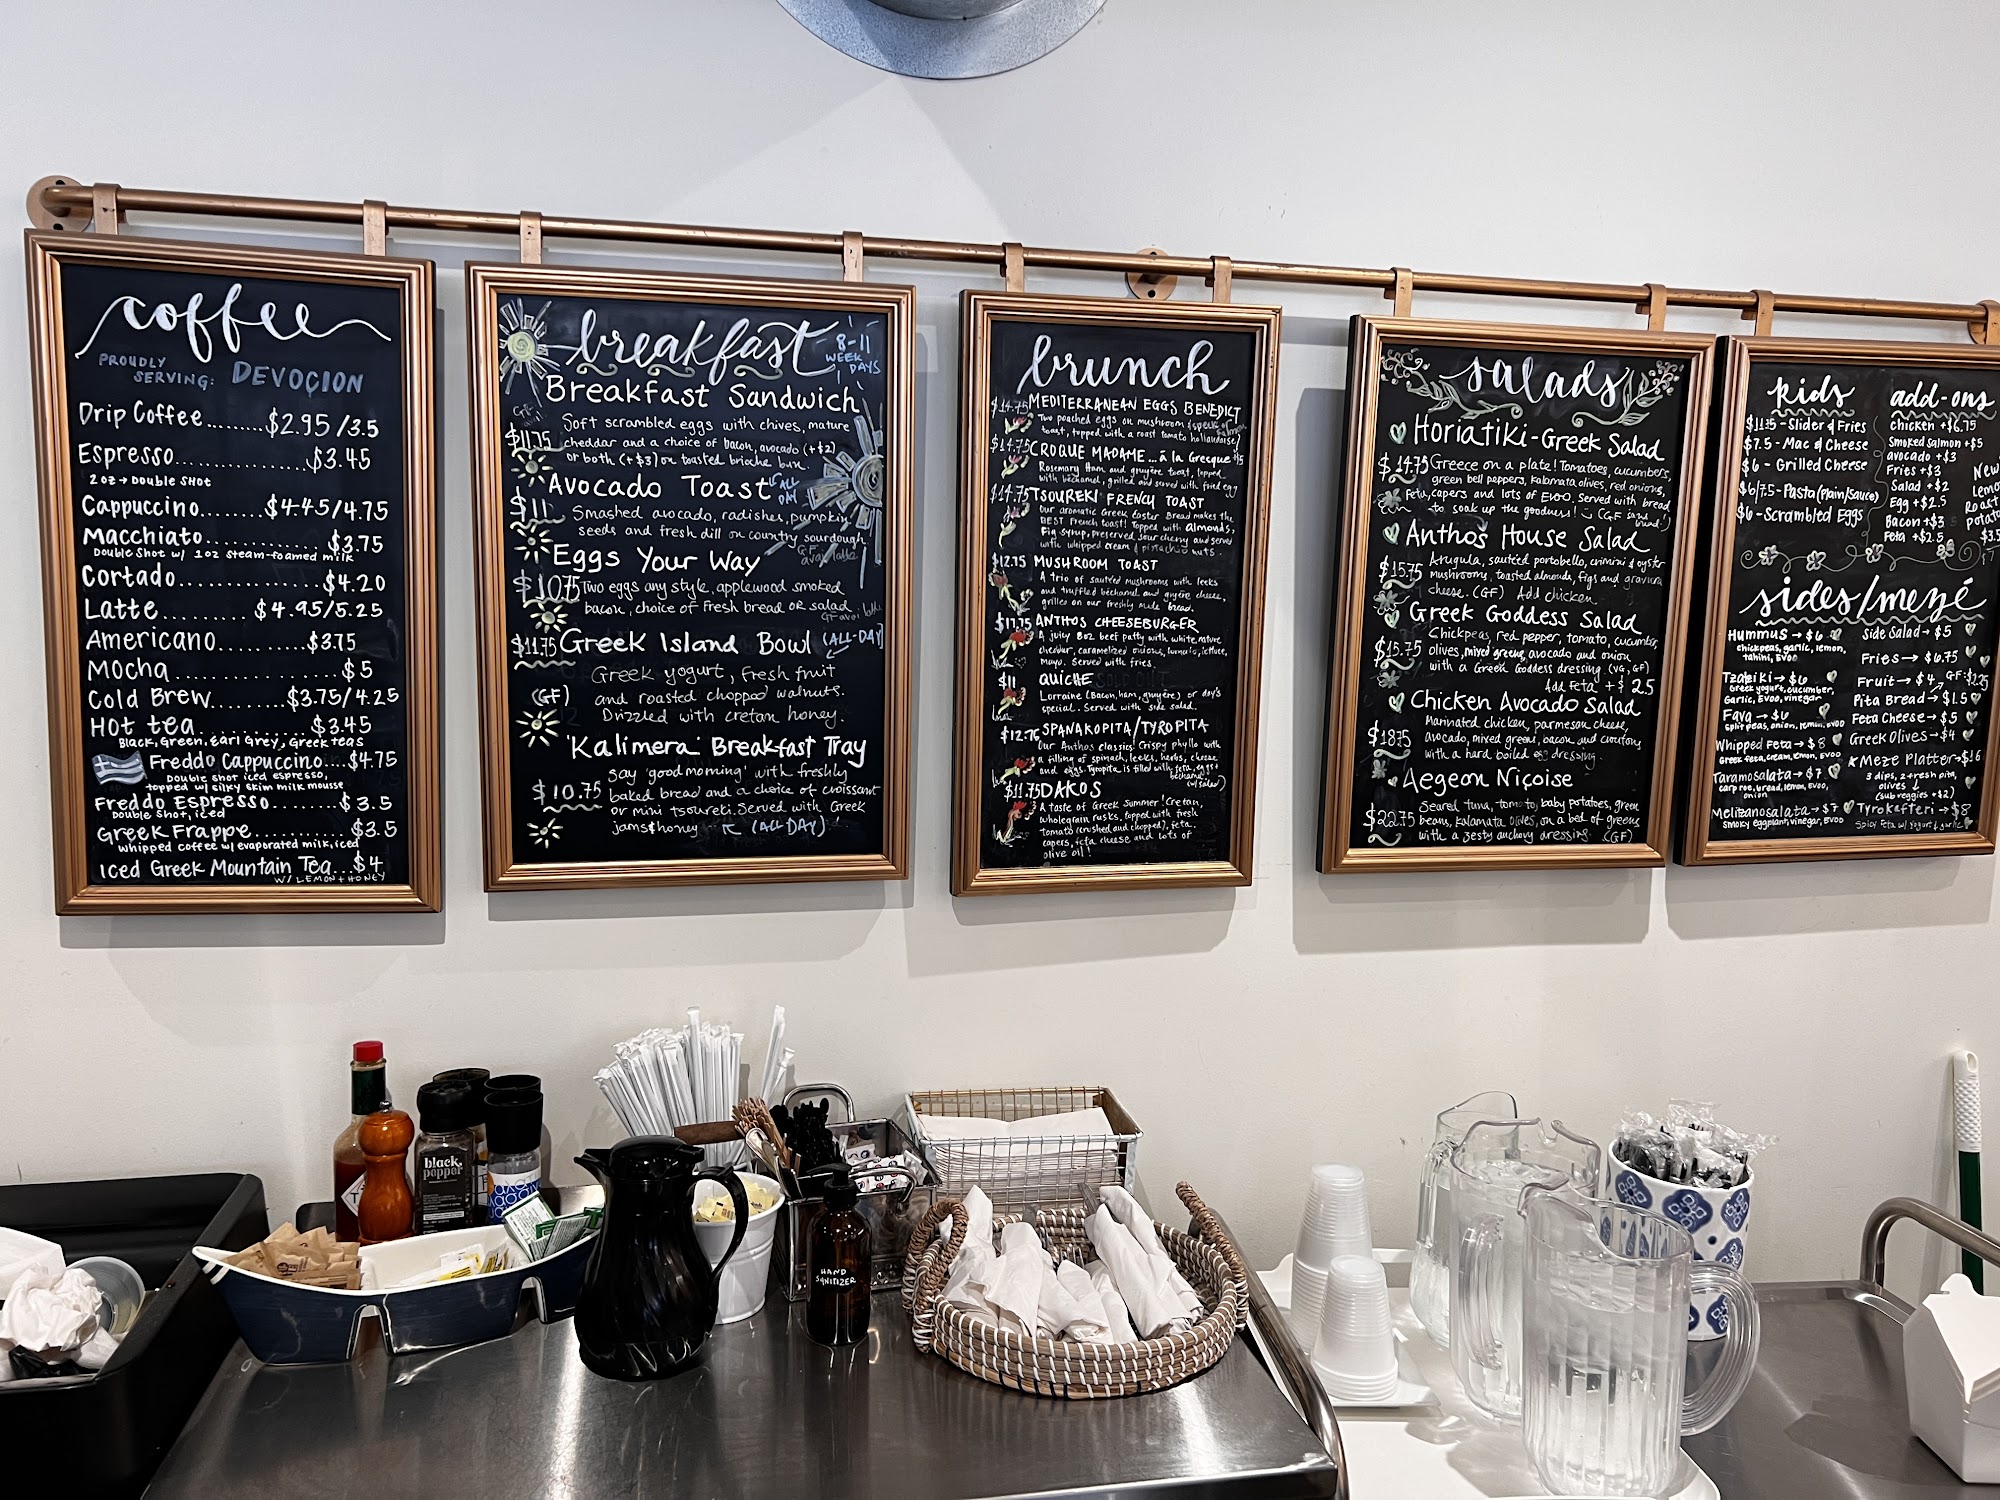 coffee
PROUDLY
SERVING: DEVOÇION
Drip Coffee.........$2.95/3.5
Espresso..............$3.45
2oz→Double Shot
Cappuccino.........$4.45/4.75
Macchiato...............$3.75
Double Shot w/ 1oz steam-foamed milk
Cortado................$4.20
Latte...........$4.95/5.25
Americano...........$3.75
Mocha....................$5
Cold Brew.........$3.75/4.25
Hot tea..............$3.45
Black, Green, Earl Grey, Greek teas
Freddo Cappuccino....$4.75
Double shot iced espresso,
topped w/ silky skim milk mousse
Freddo Espresso.........$3.5
Double Shot, iced
Greek Frappe............$3.5
whipped coffee w/ evaporated milk, iced
Iced Greek Mountain Tea...$4
W/ LEMON + HONEY
breakfast
8-11
WEEK
DAYS
Breakfast Sandwich
$11.75
Soft scrambled eggs with chives, mature
cheddar and a choice of bacon, avocado (+$2)
or both (+$3) on toasted brioche bun.
Avocado Toast
ALL
DAY
$11
Smashed avocado, radishes, pumpkin
seeds and fresh dill on country sourdough
Eggs Your Way
$10.75
Two eggs any style, applewood smoked
bacon, choice of fresh bread OR salad
$11.75 Greek Island Bowl (ALL-DAY)
Greek yogurt, fresh fruit
(GF) and roasted chopped walnuts.
Drizzled with cretan honey.
'Kalimera' Breakfast Tray
Say 'good morning' with freshly
$10.75 baked bread and a choice of croissant
or mini tsoureki. Served with Greek
jams & honey (ALL DAY)
brunch
$14.75 MEDITERRANEAN EGGS BENEDICT
Two poached eggs on mushroom
toast, topped with a roast tomato hollandaise
$14.75 CROQUE MADAME... à la Grecque
Rosemary Ham and gruyère toast, topped
with béchamel, grilled and served with fried egg
$14.75 TSOUREKI FRENCH TOAST
Our aromatic Greek Easter Bread makes the
BEST French toast! Topped with almonds,
Fig syrup, preserved sour cherry and served
with whipped cream & pistachio nuts.
$12.75 MUSHROOM TOAST
A trio of sautéed mushrooms with leeks
and truffled béchamel and gruyère cheese,
grilled on our freshly made bread.
$17.75 ANTHOS CHEESEBURGER
A juicy 8oz beef patty with white, mature
cheddar, caramelized onions, tomato, lettuce,
Mayo. Served with fries.
$11 QUICHE
Lorraine (Bacon, ham, gruyère) or day's
special. Served with side salad.
$12.75 SPANAKOPITA/TYROPITA
Our Anthos classics! Crispy phyllo with
a filling of spinach, leeks, herbs, cheese
and eggs. Tyropita is filled with feta, eggs +
béchamel
(w/ salad)
$11.75 DAKOS
A taste of Greek Summer! Cretan,
wholegrain rusks, topped with fresh
tomato (crushed and chopped), feta,
capers, feta cheese and lots of
olive oil!
salads
Horiatiki-Greek Salad
$14.75 Greece on a plate! Tomatoes, cucumbers,
green bell peppers, Kalamata olives, red onions,
Feta, capers and lots of EVOO. Served with bread
to soak up the goodness! (GF sans bread!)
Anthos House Salad
$15.75 Arugula, sautéed portobello, crimini & oyster
mushrooms, toasted almonds, figs and graviera
cheese. (GF) Add chicken.
Greek Goddess Salad
$15.75 Chickpeas, red pepper, tomato, cucumber,
olives, mixed greens, avocado and onion
with a Greek Goddess dressing (VG, GF)
Add Feta + $2.5
Chicken Avocado Salad
$18.75 Marinated chicken, parmesan cheese,
avocado, mixed greens, bacon and croutons
with a hard boiled egg dressing
Aegean Niçoise
$22.75 Seared tuna, tomato, baby potatoes, green
beans, kalamata olives, on a bed of greens
with a zesty anchovy dressing. (GF)
kids
$11.75-Slider & Fries
$7.5-Mac & Cheese
$6-Grilled Cheese
$6/7.5-Pasta (Plain/Sauce)
$6-Scrambled Eggs
add-ons
Chicken +$6.75
Smoked salmon +$5
Avocado +$3
Fries +$3
Salad +$2
Egg +$2.5
Bacon +$3
Feta +$2.5
New!
Lemon
Roast
potato
$3.5
sides/mezé
Hummus→$6
chickpeas, garlic, lemon,
tahini, EVOO
Tzatziki→$6
Greek yogurt, cucumber,
Garlic, EVOO, vinegar
Fava→$6
split peas, onion, lemon, EVOO
Whipped Feta→$8
Greek feta, cream, lemon, EVOO
Taramosalata→$7
carp roe, bread, lemon, EVOO,
onion
Melitzanosalata→$7
Smoky eggplant, vinegar, EVOO
Side Salad→$5
Fries→$6.75
Fruit→$4
Pita Bread→$1.5
GF: $2.25
Feta Cheese→$5
Greek Olives→$4
Meze Platter→$16
3 dips, 2 fresh pita,
olives
(sub veggies +$2)
Tyrokafteri→$8
Spicy Feta w/ yogurt & garlic
black
pepper
HAND
SANITIZER